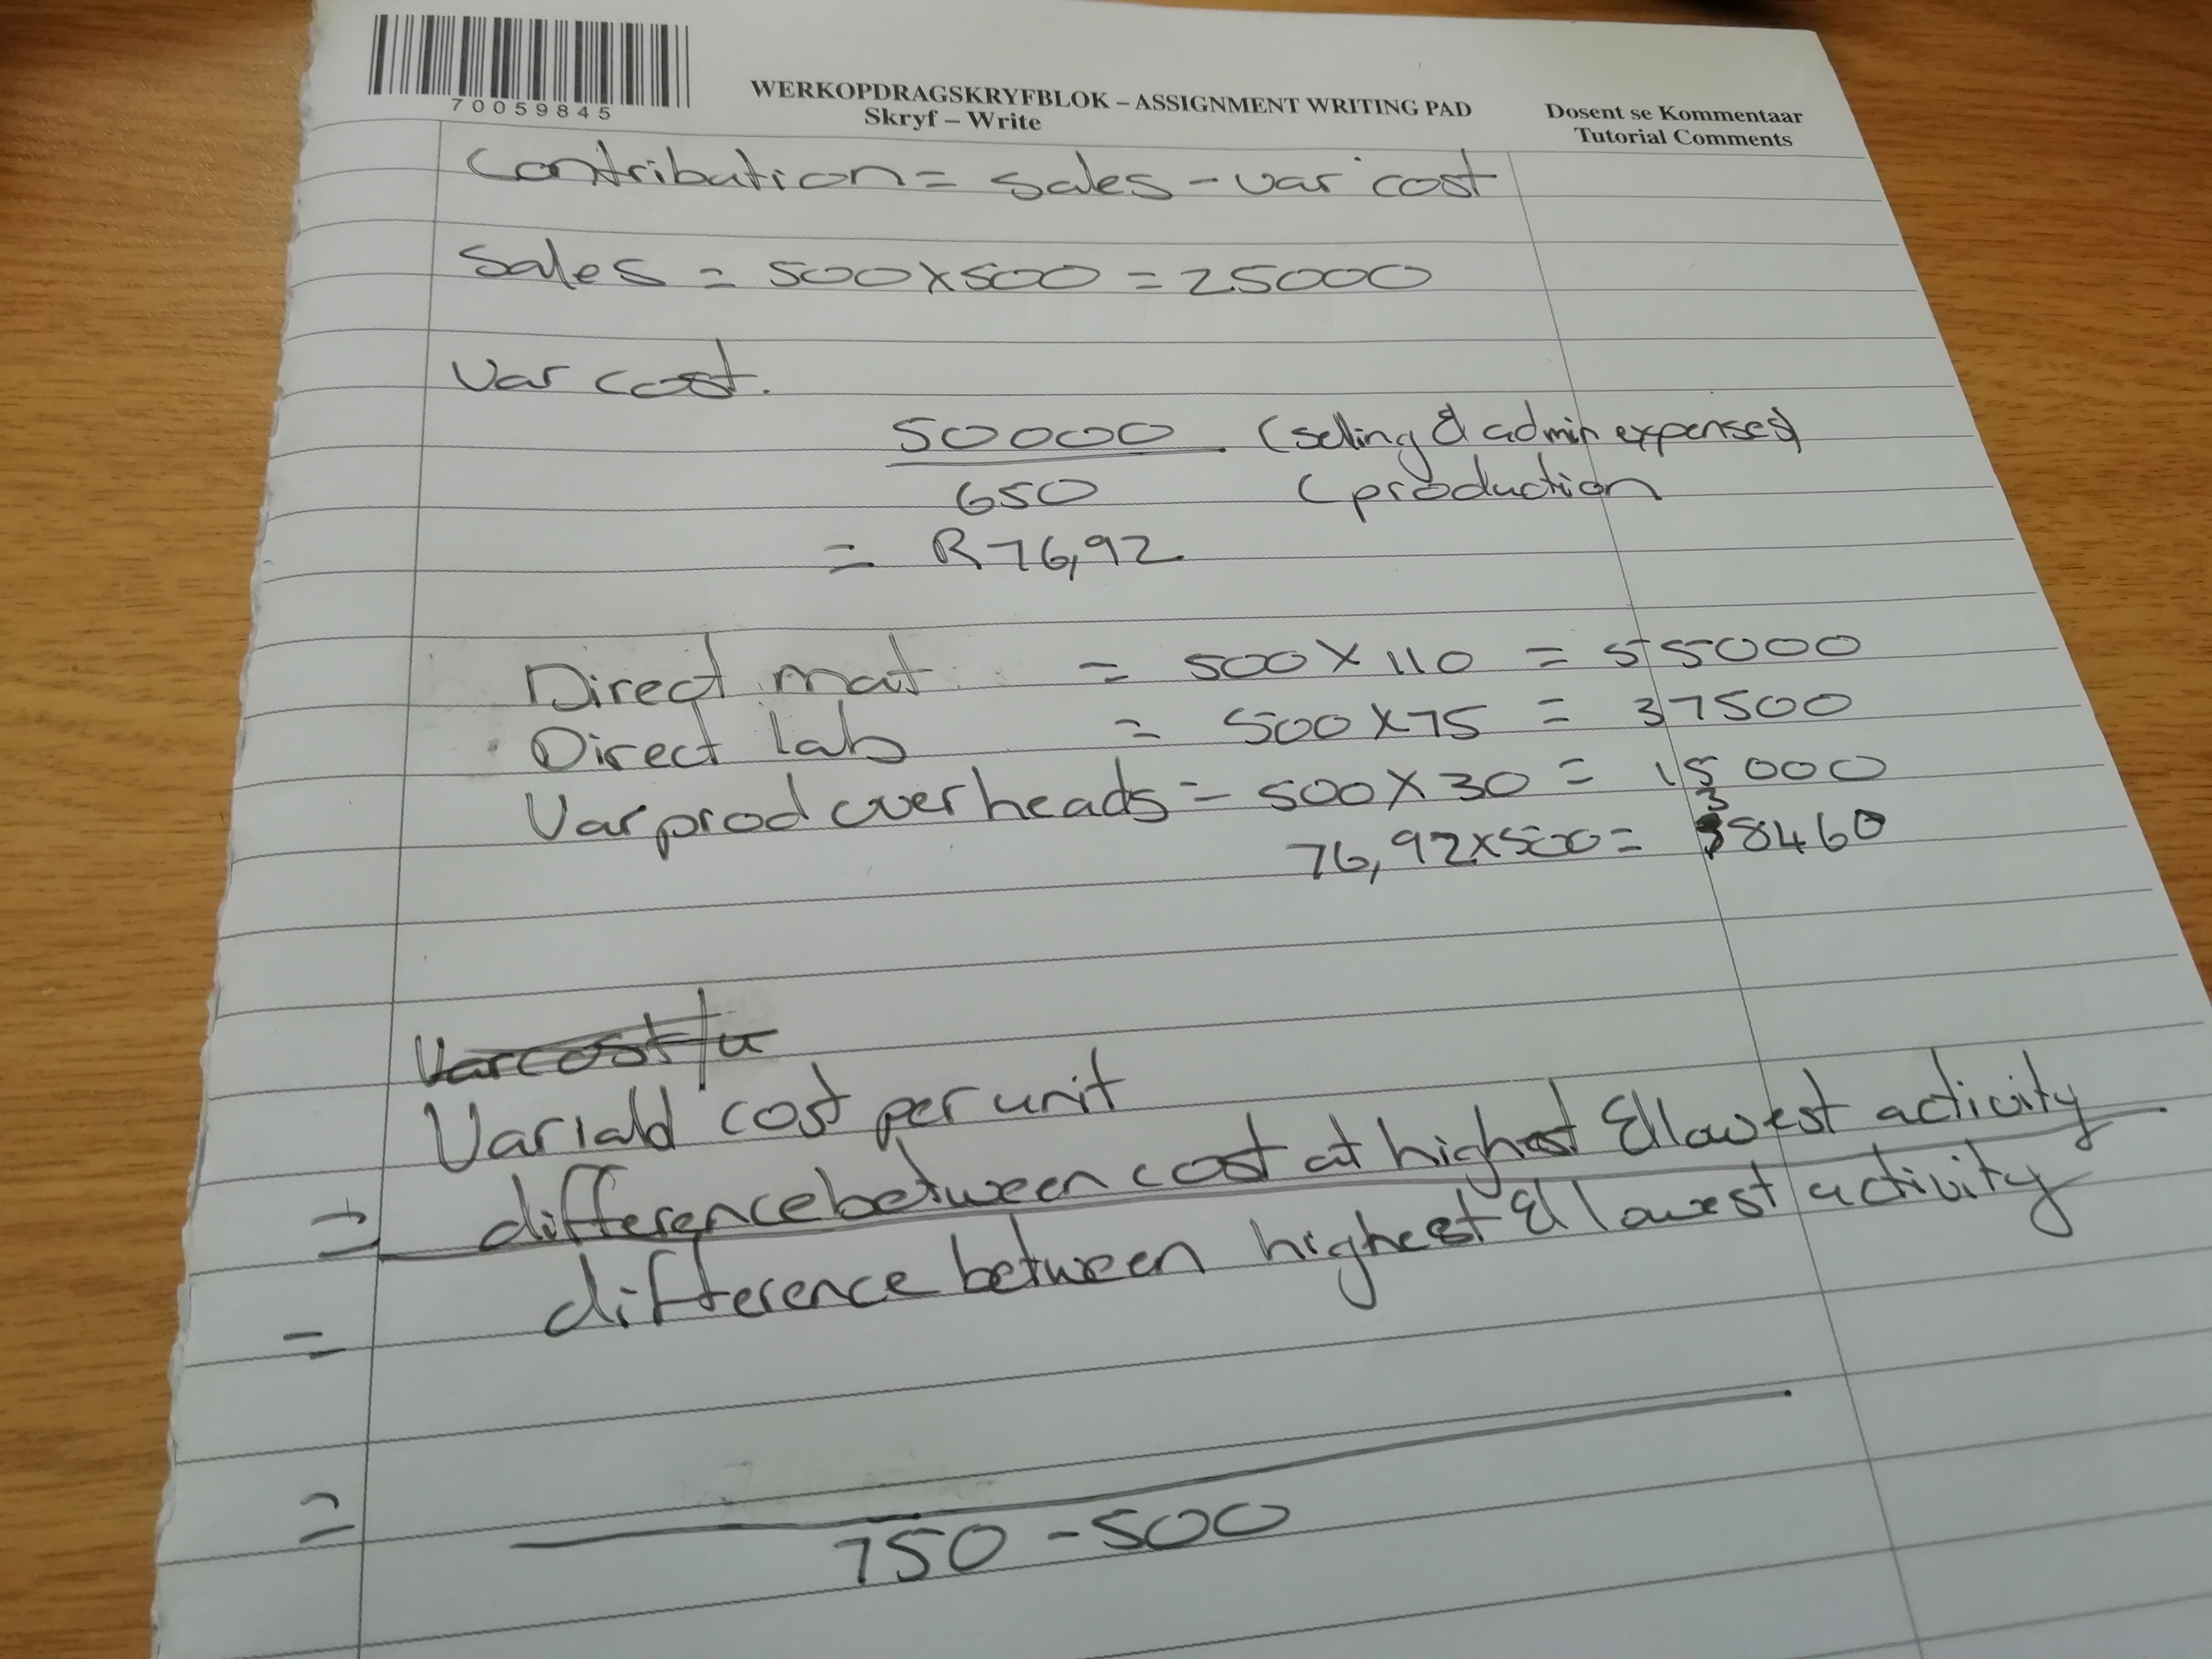 70059845
WERKOPDRAGSKRYFBLOK – ASSIGNMENT WRITING PAD
Skryf – Write
Dosent se Kommentaar
Tutorial Comments
Contribution = sales - var cost
Sales = 500 x 500 = 25000
Var cost.
50000 (selling & admin expenses)
650 (production
= R76,92
Direct mat = 500 x 110 = 55000
Direct lab = 500 x 75 = 37500
Var prod overheads = 500 x 30 = 15000
76,92 x 500 = 38460
Var cost/u
Variabl cost per unit
= difference between cost at highest & lowest activity
= difference between highest & lowest activity
=
750 - 500